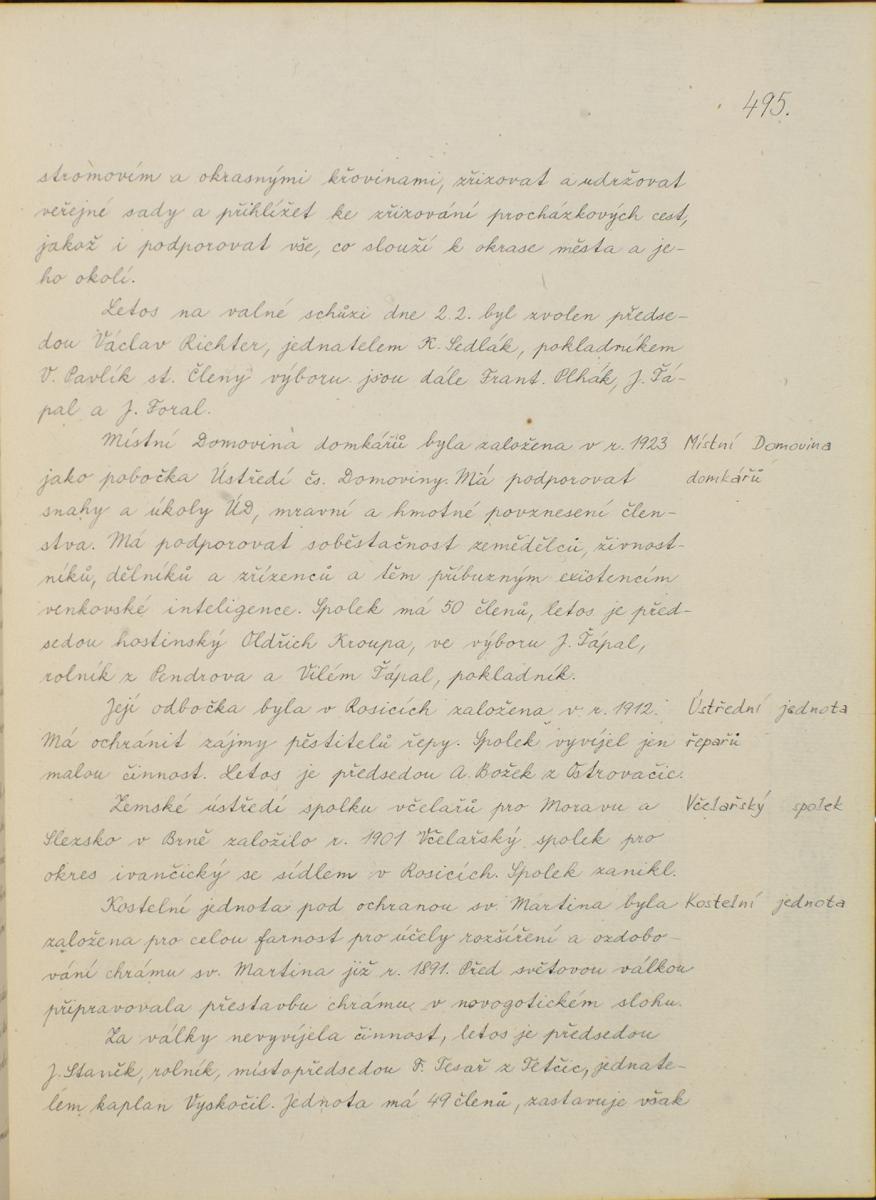 495.
stromovím a okrasnými křovinami, zřizovat a udržovat
veřejné sady a přihlížet ke zřizování procházkových cest,
jakož i podporovat vše, co slouží k okrase města a je-
ho okolí.
Letos na valné schůzi dne 2.2. byl zvolen předse-
dou Václav Richter, jednatelem K. Sedlák, pokladníkem
V. Pavlík st. Členy výboru jsou dále Frant. Plhák, J. Ťá-
pal a J. Foral.
Místní Domovina domkářů byla založena v r. 1923 Místní Domovina
jako pobočka Ústředí čs. Domoviny. Má podporovat domkářů
snahy a úkoly ÚD, mravní a hmotné povznesení člen-
stva. Má podporovat soběstačnost zemědělců, živnost-
níků, dělníků a zřízenců a těm příbuzným existencím
venkovské inteligence. Spolek má 50 členů, letos je před-
sedou hostinský Oldřich Kroupa, ve výboru J. Ťápal,
rolník z Pendrova a Vilém Ťápal, pokladník.
Její odbočka byla v Rosicích založena v r. 1912. Ústřední jednota
Má ochránit zájmy pěstitelů řepy. Spolek vyvíjel jen řepařů
malou činnost. Letos je předsedou A. Božek z Ostrovačic.
Zemské ústředí spolku včelařů pro Moravu a Včelařský spolek
Slezsko v Brně založilo r. 1901 Včelařský spolek pro
okres ivančický se sídlem v Rosicích. Spolek zanikl.
Kostelní jednota pod ochranou sv. Martina byla Kostelní jednota
založena pro celou farnost pro účely rozšíření a ozdobo-
vání chrámu sv. Martina již r. 1891. Před světovou válkou
připravovala přestavbu chrámu v novogotickém slohu.
Za války nevyvíjela činnost, letos je předsedou
J. Staněk, rolník, místopředsedou F. Tesař z Tetčic, jednate-
lem kaplan Vyskočil. Jednota má 49 členů, zastavuje však